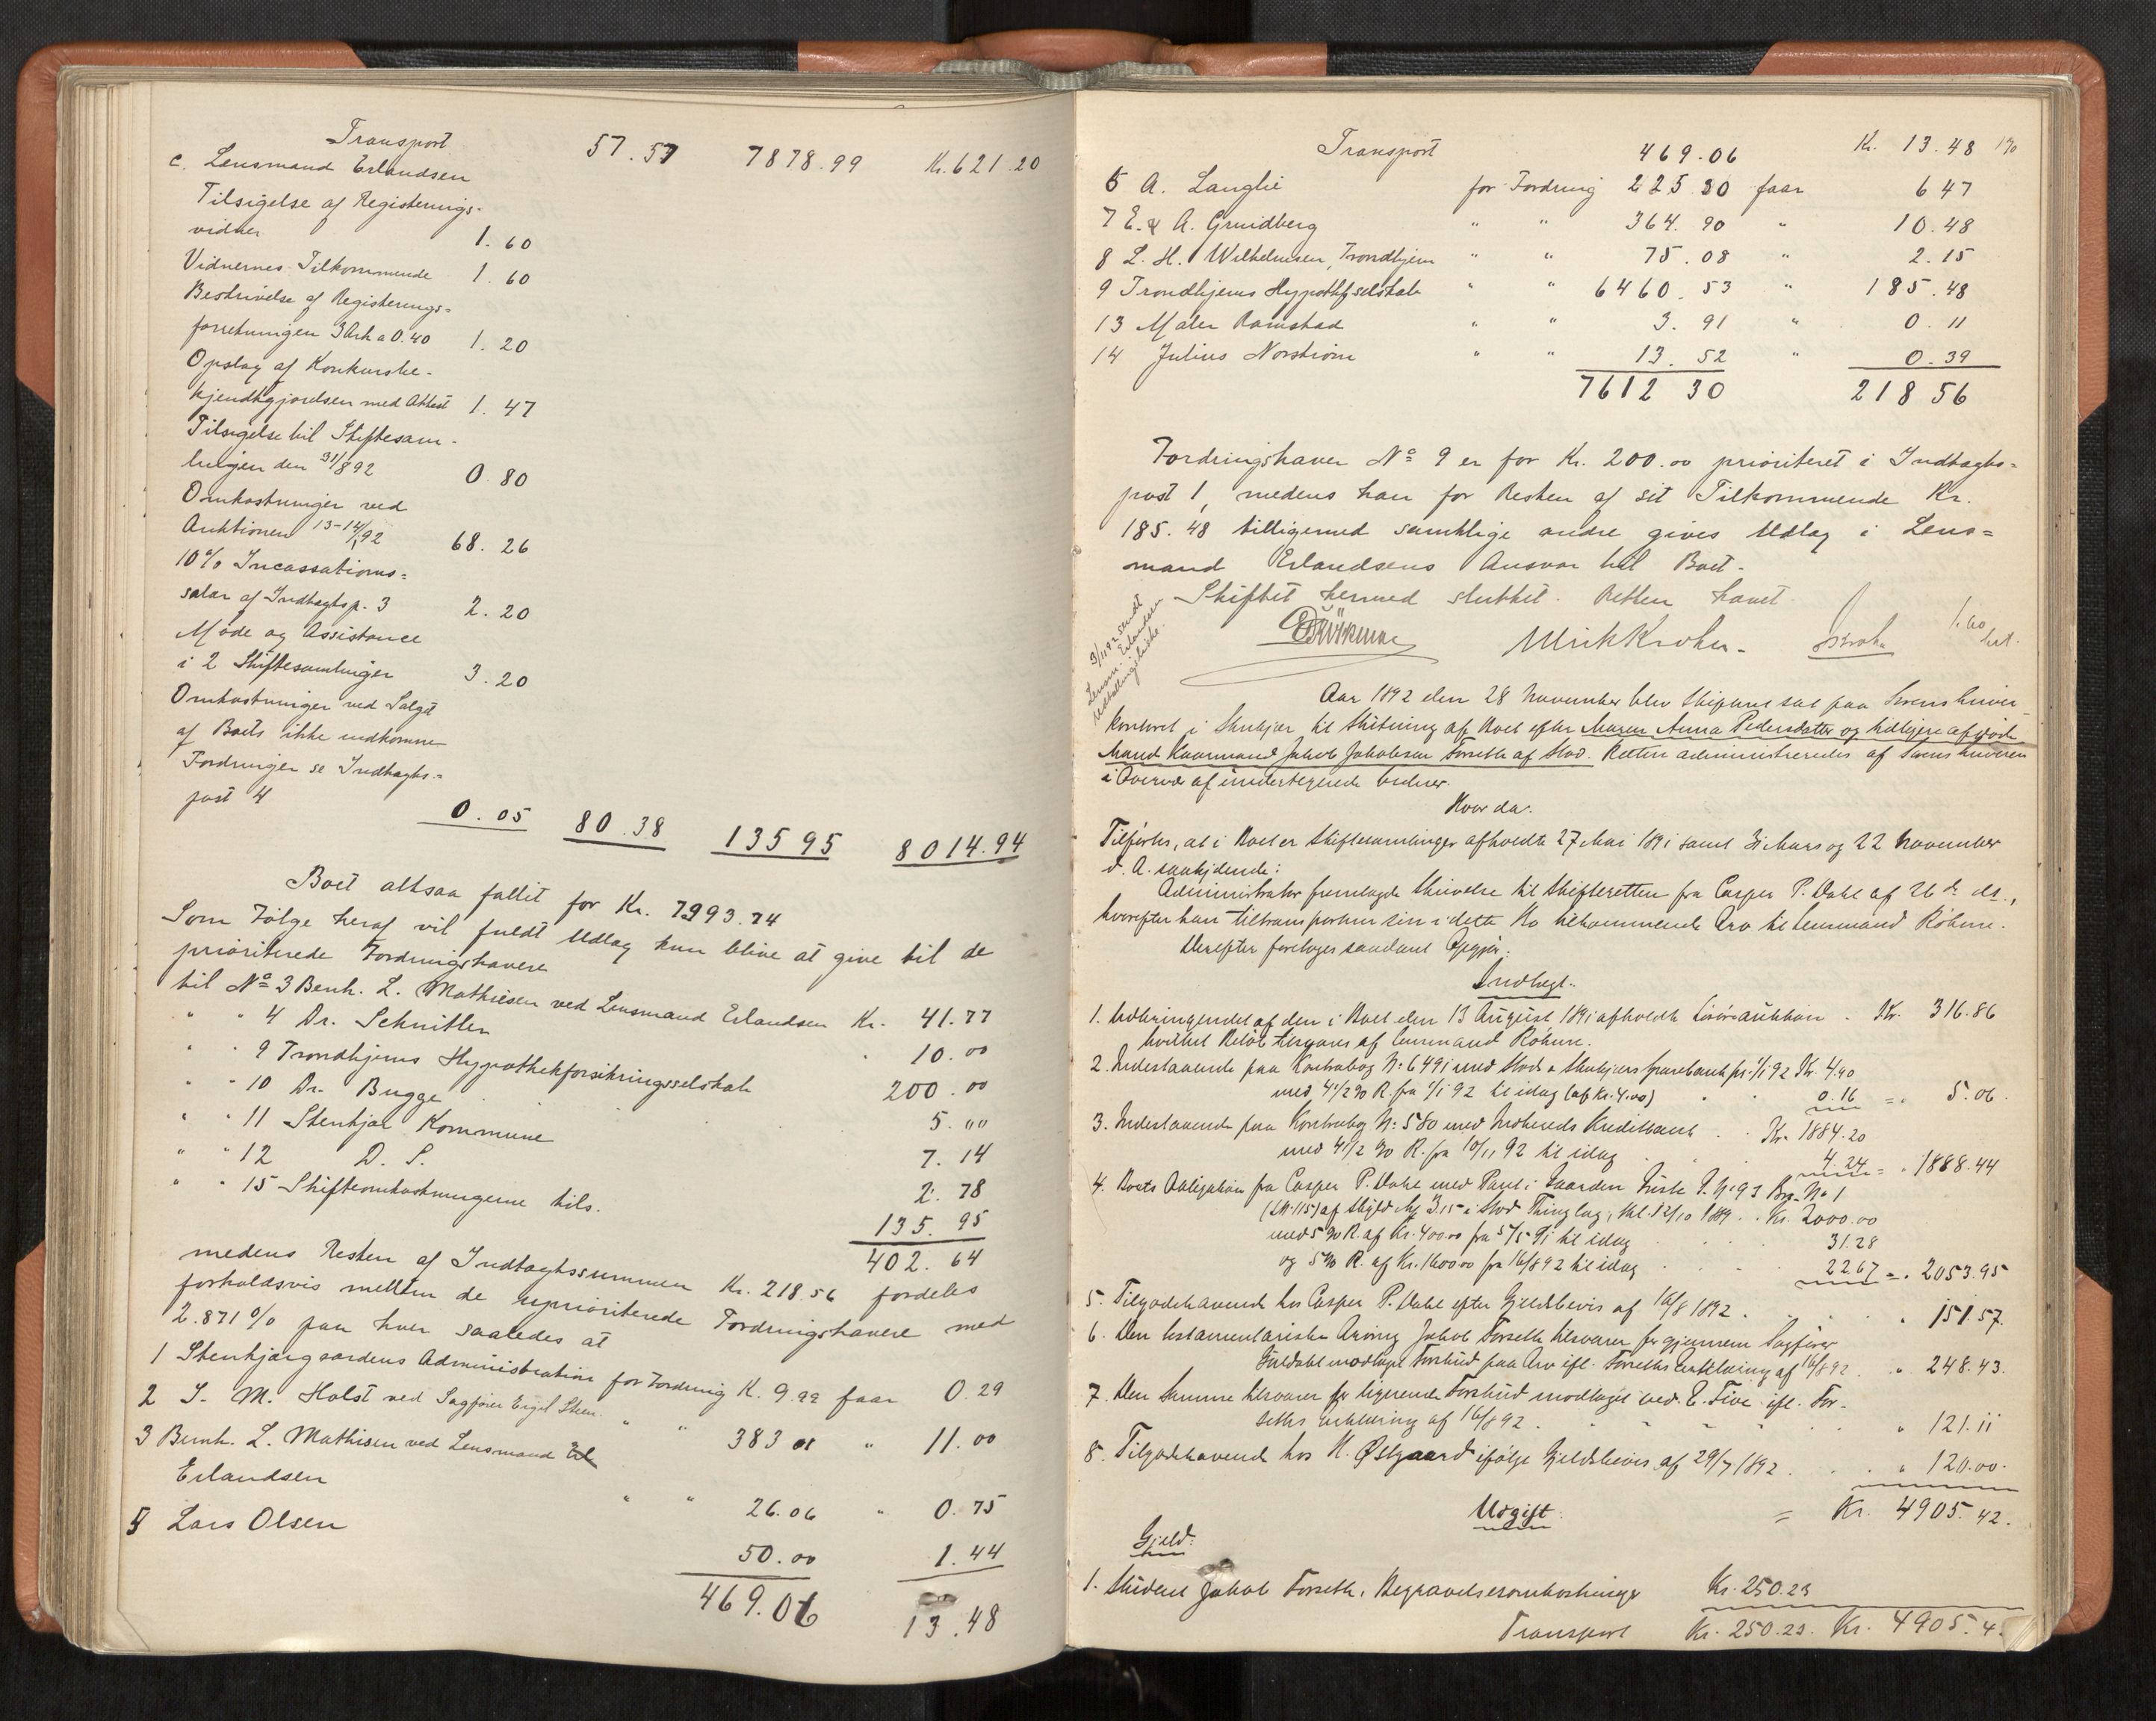 Transport 57.57 7878.99 Kr. 621.20
c. Lensmand Erlandsen
Tilsigelse af Registerings-
vidner 1.60
Vidnernes Tilkommende 1.60
Beskrivelse af Registerings=
forretningen 3 Ark a 0.40 1.20
Opslag af Konkursbe-
kjendtgjørelsen med Attest 1.47
Tilsigelse til Skiftesam-
lingen den 31/8 92 0.80
Omkostninger ved
Auktionen 13-14/ 92 68.26
10% Incassations=
salær af Indtægtsp. 3 2.20
Møde og Assistance
i 2 Skiftesamlinger 3.20
Omkostninger ved Salget
af Boets ikke indkomne
Fordringer se Indtægts-
post 4 0.05 80.38 135 95 8014.94
Boet altsaa fallit for Kr. 7393.74
Som Følge heraf vil fuldt Udlæg kun blive at give til de
prioriterede Fordringshavere
til No 3 Benh. L. Mathisen ved Lensmand Erlandsen Kr. 41.77
" " 4 Dr. Schnitler 10.00
" " 9 Trondhjems Hypothekforsikringsselskab 200.00
" " 10 Dr. Bugge 5.00
" " 11 Stenkjær Kommune 7.14
" " 12 D. S. 2.78
" " 15 Skifteomkostningerne tils. 135.95
402.64
medens Resten af Indtægtssummen Kr. 218.56 fordeles
forholdsvis mellem de uprioriterede Fordringshavere med
2.871% paa hver saaledes at
1 Stenkjærgaardens Administration for Fordring K. 9.99 faar 0.29
2 J. M. Holst ved Sagfører Engel Steen " " 383 01 " 11.00
3 Bernh. L. Mathisen ved Lensmand
Erlandsen " " 26.06 " 0.75
5 Lars Olsen 50.00 1.44
469.06 13.48
Transport 469.06 Kr. 13.48
6 A. Langlie for Fordring 225.30 faar 6 47
7 E. & A. Grundberg " " 364.90 " 10.48
8 L. H. Wilhelmsen, Trondhjem " " 75.08 " 2.15
9 Trondhjems Hypothfselskab " " 6460.53 " 185.48
13 Maler Ramstad " " 3.91 " 0.11
14 Julius Norstrøm " " 13.52 " 0.39
7612 30 218 56
Fordringshaver No 9 er for Kr. 200.00 prioriteret i Indtægts=
post 1, medens han for Resten af sit Tilkommende Kr.
185.48 tilligemed samtlige andre gives Udlæg i Lens=
mand Erlandsens Ansvar til Boet.
Skiftet hermed sluttet. Retten hævet.
3/1192 sendt
Lensm. Erlandsen
Udbetalingsliste.
Ulrik Krohn.
Aar 1892 den 28 November blev Skifteret sat paa Sorenskriver-
kontoret i Stenkjær til Slutning af Boet efter Maren Anna Pedersdatter og tidligere afdøde
Mand Kaarmand Jakob Jakobsen Forseth af Stod. Retten administreredes af Sorenskriveren
i Overvær af undertegnede Vidner.
Hvor da:
Tilførtes, at i Boet er Skiftesamlinger afholdte 27 Mai 1891 samt 31 Mars og 22 November
d. A. saalydende:
Administrator fremlagde Skrivelse til Skifteretten fra Casper P. Dahl af 26 d. Ms.,
hvorefter han tiltransporterer sin i dette Bo tilkommende Arv til Lensmand Røhme.
Derefter foretoges saadant Opgjør:
Indtægt.
1. Udbringendet af den i Boet den 13 August 1891 afholdte Løsøreauktion . Kr. 316.86
hvilket Beløb tilsvares af Lensmand Røhme.
2. Indestaaende paa Kontrabog No 6491 med Stods & Stenkjærs Sparebank pr. 1/1 92 Kr. 4.90
med 4 1/2 % R. fra 1/1 92 til idag (af Kr. 4.00) 0.16 = " 5.06
3. Indestaaende paa Kontrabog No 580 med Indhereds Kreditbank . Kr. 1884.20
med 4 1/2 % R. fra 10/11 92 til idag 4.24 = " 1888.44
4. Boets Obligation fra Casper P. Dahl med Pant i Gaarden G. No 93 Br. No 1
(LN 115) af Skyld Mk 3.15 i Stod Thinglag, thl. 12/10 1889 . Kr. 2000.00
med 5 % R. af Kr. 400.00 fra 5/5 91 til idag 31.28
og 5 % R. af Kr. 1600.00 fra 16/8 92 til idag 22.67 = " 2053.95
5. Tilgodehavende hos Casper P. Dahl efter Gjeldsbevis af 16/8 1892 . " 151.57.
6. Den testamentariske Arving Jakob Forseth tilsvarer for gjennem Sagfører
Guldahl modtaget Forskud paa Arv ifl. Forseths Erklæring af 16/8 92 . " 248.43.
7. Den Samme tilsvarer for lignende Forskud modtaget ved E. Five ifl. For-
seths Erklæring af 16/8 92 . " 121.11
8. Tilgodehavende hos H. Østgaard ifølge Gjeldsbevis af 29/7 1892 . . " 120.00.
= Kr. 4905.42.
Udgift.
Gjeld:
1. Student Jakob Forseth, Begravelsesomkostninger Kr. 250.23
Transport Kr. 250.23. Kr. 4905.4